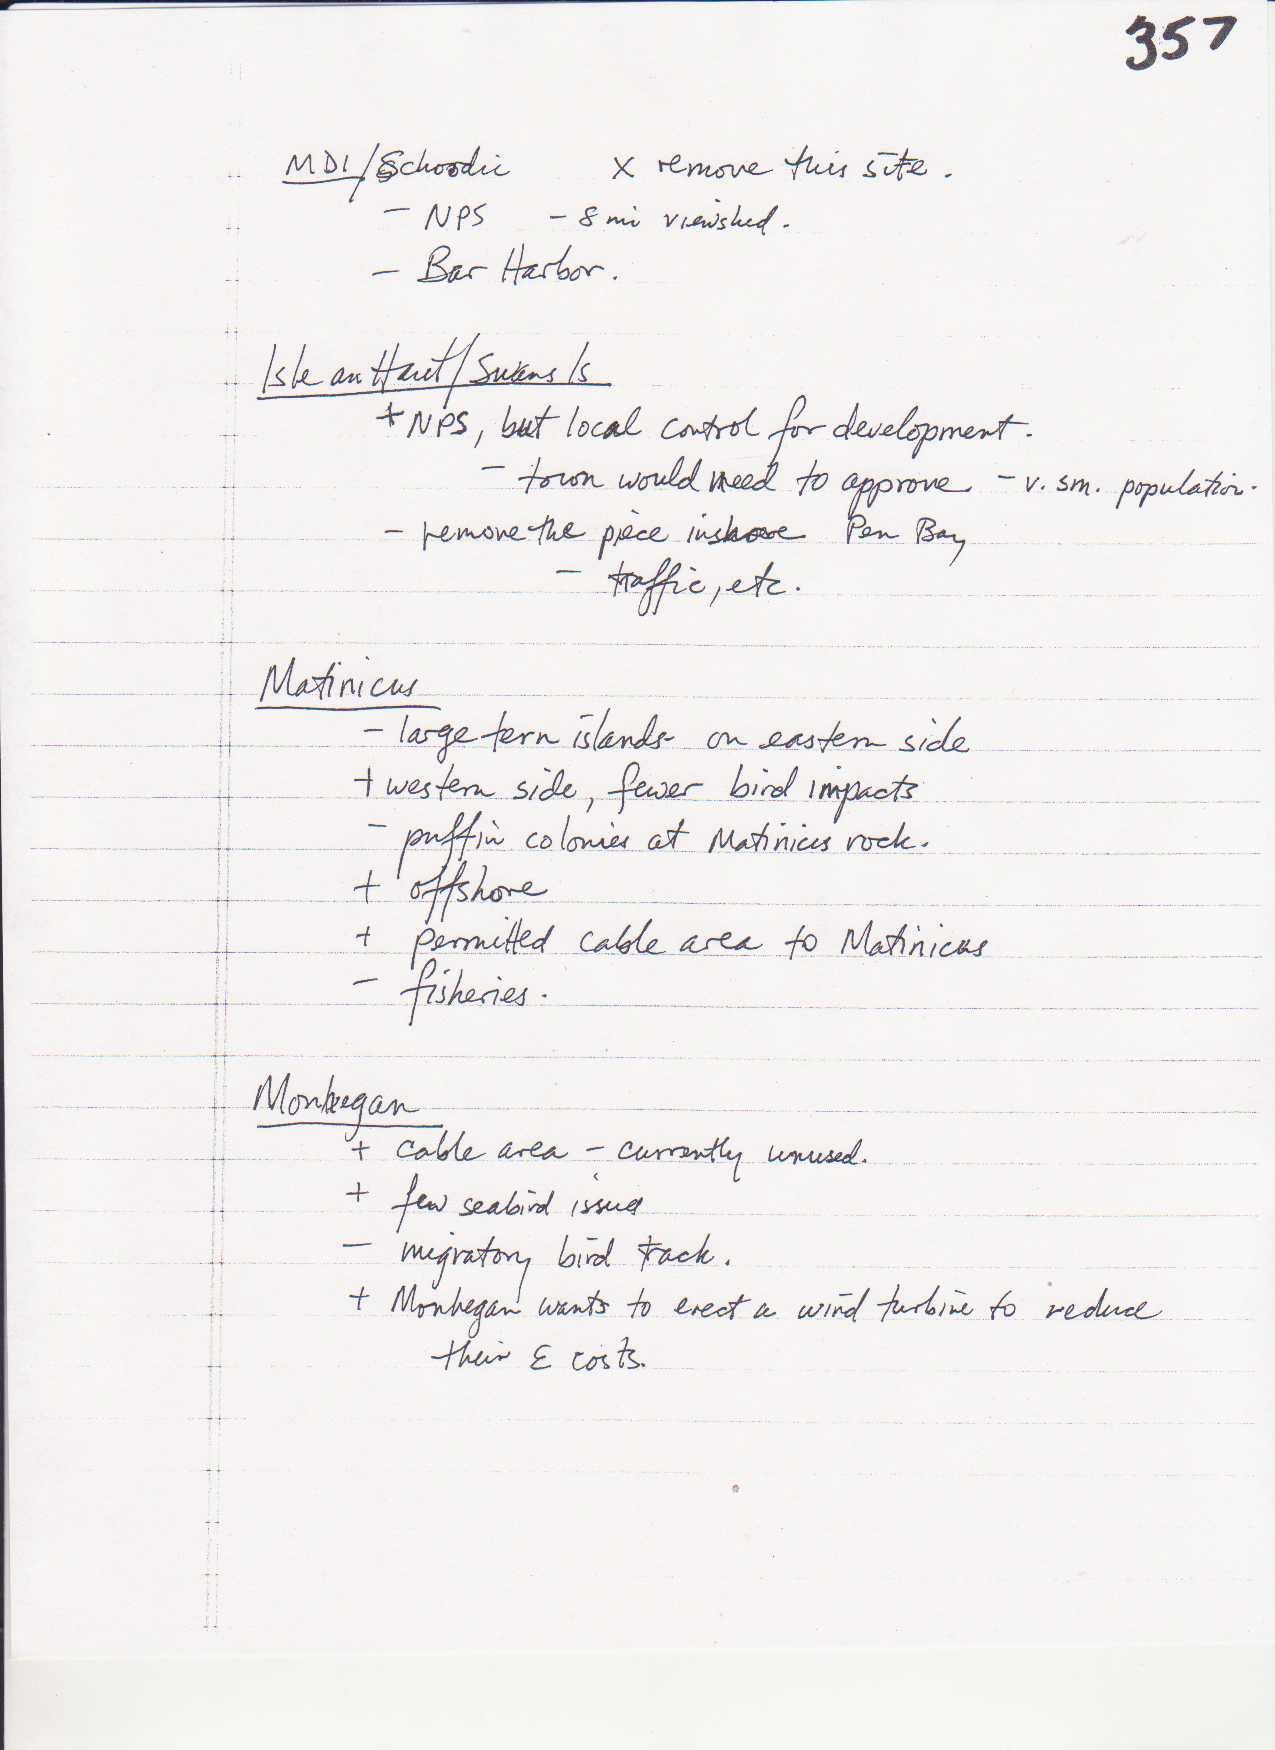 357
MDI/Schoodic X remove this site.
- NPS - 8 mi viewshed.
- Bar Harbor.
Isle au Haut/Swans Is
+ NPS, but local control for development.
- town would need to approve - v. sm. population.
- remove the piece inshore Pen Bay
- traffic, etc.
Matinicus
- large tern islands on eastern side
+ western side, fewer bird impacts
- puffin colonies at Matinicus rock.
+ offshore
+ permitted cable area to Matinicus
- fisheries.
Monhegan
+ cable area - currently unused.
+ few seabird issues
- migratory bird track.
+ Monhegan wants to erect a wind turbine to reduce
their E costs.